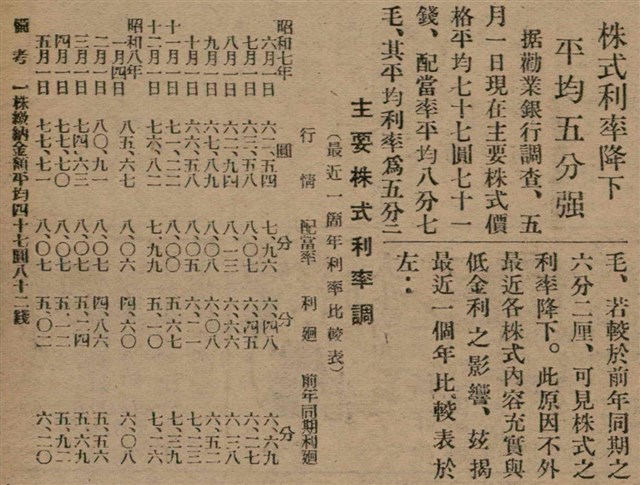 株式利率降下
平均五分强
据勸業銀行調查、五
月一日現在主要株式價
格平均七十七圓七十一
錢、配當率平均八分七
毛、其平均利率爲五分二
毛、若較於前年同期之
六分二厘、可見株式之
利率降下。此原因不外
最近各株式內容充實與
低金利之影響、玆揭
最近一個年比較表於
左:
主要株式利率調
(最近一箇年利率比較表)
行情 配當率 利廻 前年同期利廻
昭和七年 圓 分 分 分
六月一日 六一、五四 七、九六 六、四八 六、六九
七月一日 六三、五八 八、〇七 六、四五 六、二七
八月一日 六二、九四 八、一三 六、六六 六、三八
九月一日 六六、七八 八、〇八 六、〇八 六、五二
十月一日 六六、五八 八、〇七 六、二一 七、二三
十一月一日 七一、二二 八、〇〇 五、六七 七、三九
十二月一日 七六、八二 七、九九 五、一〇 七、二六
昭和八年
一月四日 八五、六七 八、〇六 四、六〇 六、〇八
二月一日 八〇、九一 八、〇七 四、八六 五、五六
三月一日 七四、六三 八、〇七 五、二四 五、六九
四月一日 七七、七〇 八、〇七 五、一二 五、九二
五月一日 七七、七一 八、〇七 五、〇二 六、二〇
備考 一株繳納金額平均四十七圓八十二錢